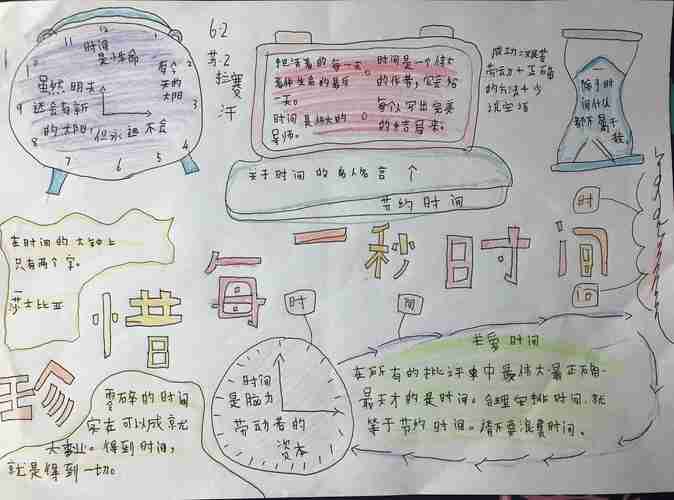 12
11
10
9
8
7
6
5
4
3
2
时间
是生命
虽然明天
还会有新
的太阳,但永远不会
有今
天的
太阳
6·2
把活着的每一天
看作生命的最后
一天。
时间是伟大的
导师。
时间是一个伟大
的作者,它会给
每个人写出完美
的结局来。
关于时间的名人名言 个
节约时间
成功=艰苦
劳动+正确
的方法+少
说空话
除了时
间什么
都不属于
我。
在时间的大钟上
只有两个字。
莎士比亚
珍惜每一秒时间
时
间
时
间
零碎的时间
实在可以成就
大事业。得到时间,
就是得到一切。
时间
是脑力
劳动者的
资本
关爱时间
在所有的批评中最伟大最正确
最天才的是时间。合理安排时间,就
等于节约时间。请不要浪费时间。